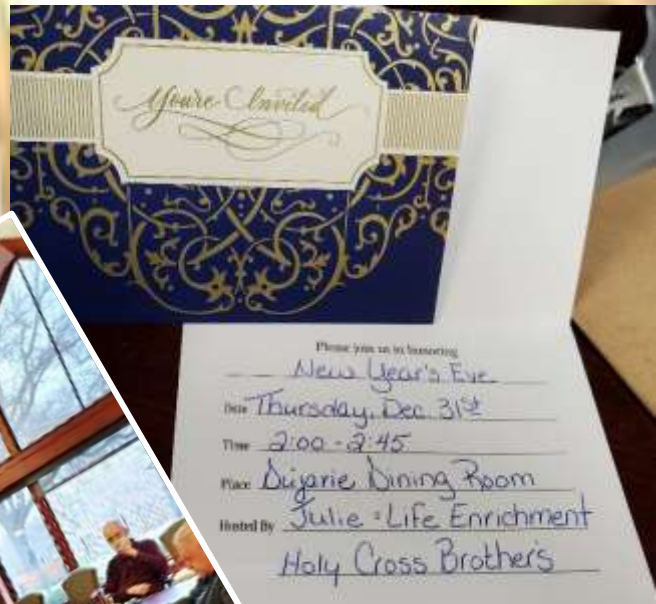 You're Invited
Please join us in honoring
New Year's Eve
Date Thursday, Dec. 31st
Time 2:00 - 2:45
Place Dujarie Dining Room
Hosted By Julie - Life Enrichment
Holy Cross Brother's